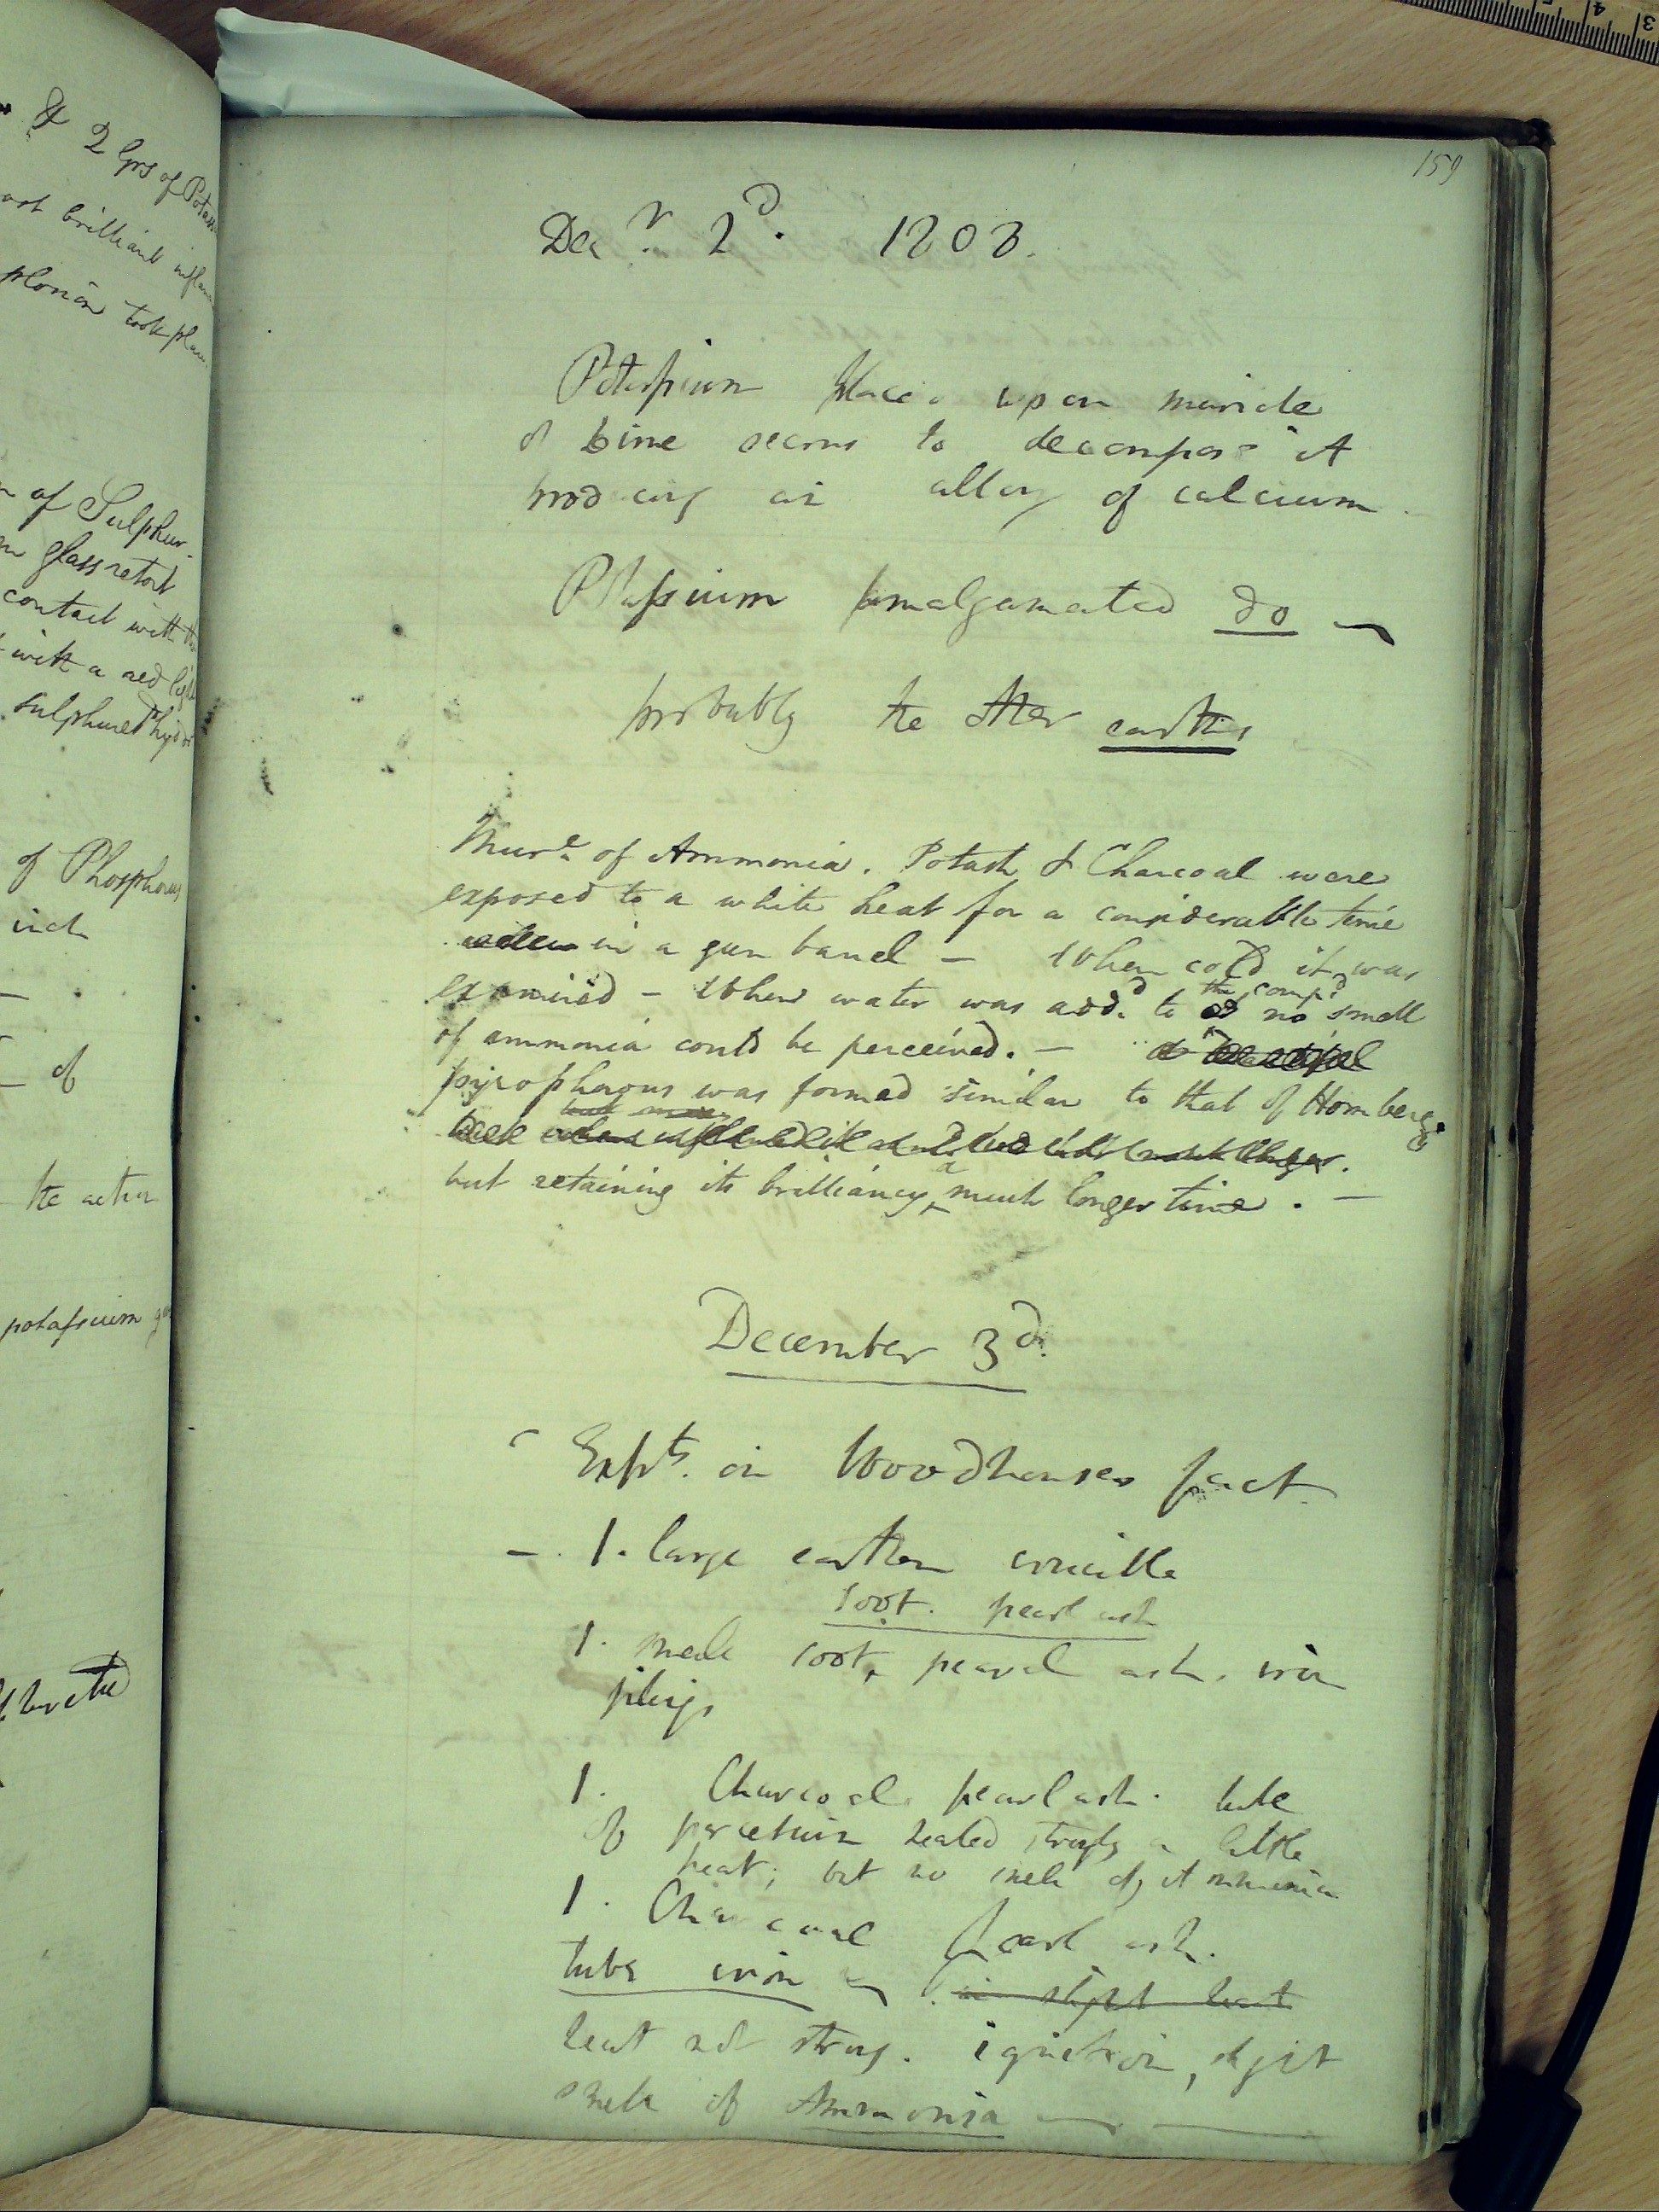 & 2 Grs of Potass
brilliant inflam
plosion took plac
of Sulphur.
glass retort
contact with th
with a red
sulphuretd hydr
of Phosphorus
inch
of
the action
potassium
159
Decr. 2d. 1808.
Potassium placed upon muriate
of lime seems to decompose it
producing an alloy of calcium.
Potassium amalgamated do
probably the other earths
Mure. of Ammonia. Potash & Charcoal were
exposed to a white heat for a considerable time
in a gun barrel – When cold it was
examined – When water was addd. to the compd no smell
of ammonia could be perceived. – a
pyrophorus was formed similar to that of Homberg's
but retaining its brilliancy a much longer time. –
December 3d.
Expts. on Woodhouses fact
– 1. large earthen crucible
soot. pearl ash
1. small soot, pearl ash, iron
filings
1. Charcoal pearl ash. tube
of porcelain heated strongly a little
heat; but no smell of ammonia
1. Charcoal pearl ash.
tube iron in slight heat
heat not strong. ignition, slight
smell of Ammonia
3 4 5